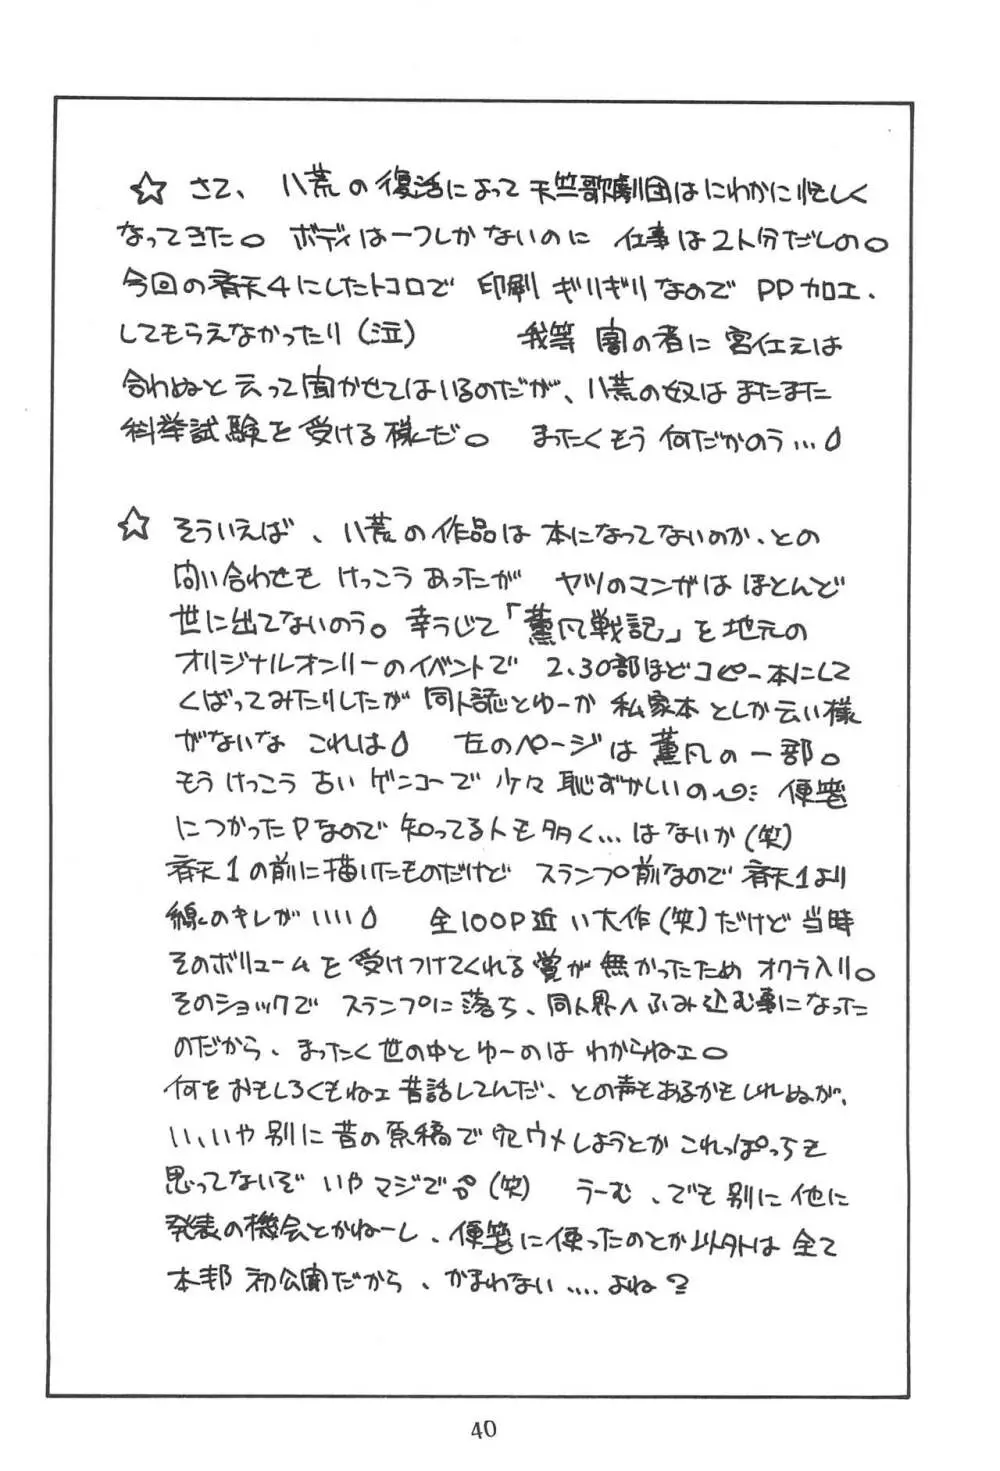 ☆ さて、八荒の復活によって天竺歌劇団はにわかに忙しく
なってきた。ボディは一つしかないのに 仕事は2人分だしの。
今回の斉天4にしたトコロで 印刷ギリギリなので PP加工、
してもらえなかったり(泣) 我等 闇の者に 宮仕えは
合わぬと云って聞かせてはいるのだが、八荒の奴は またまた
科挙試験を受ける様だ。 まったくもう 何だかのう…
☆ そういえば、八荒の作品は 本になってないのか、との
問い合わせも けっこう あったが ヤツのマンガは ほとんど
世に出てないのう。幸うじて「薫凡戦記」を地元の
オリジナルオンリーのイベントで 2、30部ほどコピー本にして
くばってみたりしたが 同人誌とゆーか 私家本 としか云い様
がないな これは 左のページは 薫凡の一部。
もう けっこう 古い ゲンコーで 少々 恥ずかしいの〜 便箋
につかったPなので 知ってる人も 多く…はないか(笑)
斉天1の前に描いたものだけど スランプ前なので 斉天1より
線のキレが いいい 全100P近い大作(笑)だけど 当時
そのボリュームを 受けつけてくれる 賞が 無かったため オクラ入り。
そのショックで スランプに落ち、同人界へ ふみ込む事になった
のだから、まったく 世の中とゆーのは わからねェ。
何を おもしろくもねェ 昔話してんだ、との声もあるかもしれぬが、
い、いや 別に 昔の原稿で 穴ウメしようとか これっぽっちも
思ってないぞ いや マジで(笑) うーむ、でも 別に 他に
発表の機会とかねーし、便箋に使ったのとか以外は 全て
本邦 初公開だから、かまわない….よね?
40